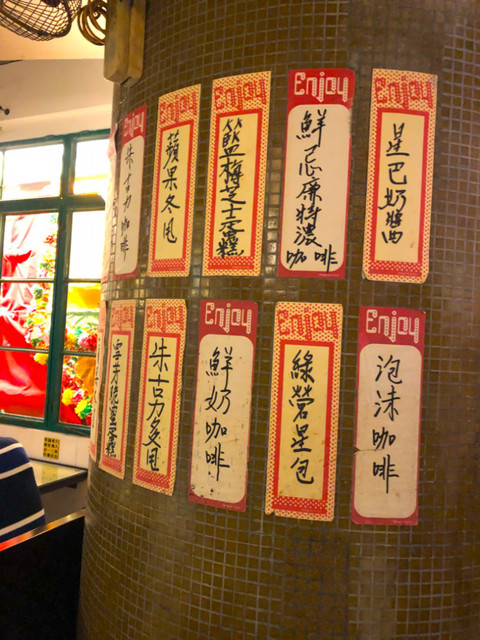 Enjoy
朱古力咖啡
Enjoy
蘋果冬甩
Enjoy
籃梅芝士蛋糕
Enjoy
鮮忌廉特濃咖啡
Enjoy
星巴奶醬
Enjoy
蛋糕
Enjoy
朱古力多甩
Enjoy
鮮奶咖啡
Enjoy
綠營星包
Enjoy
泡沫咖啡